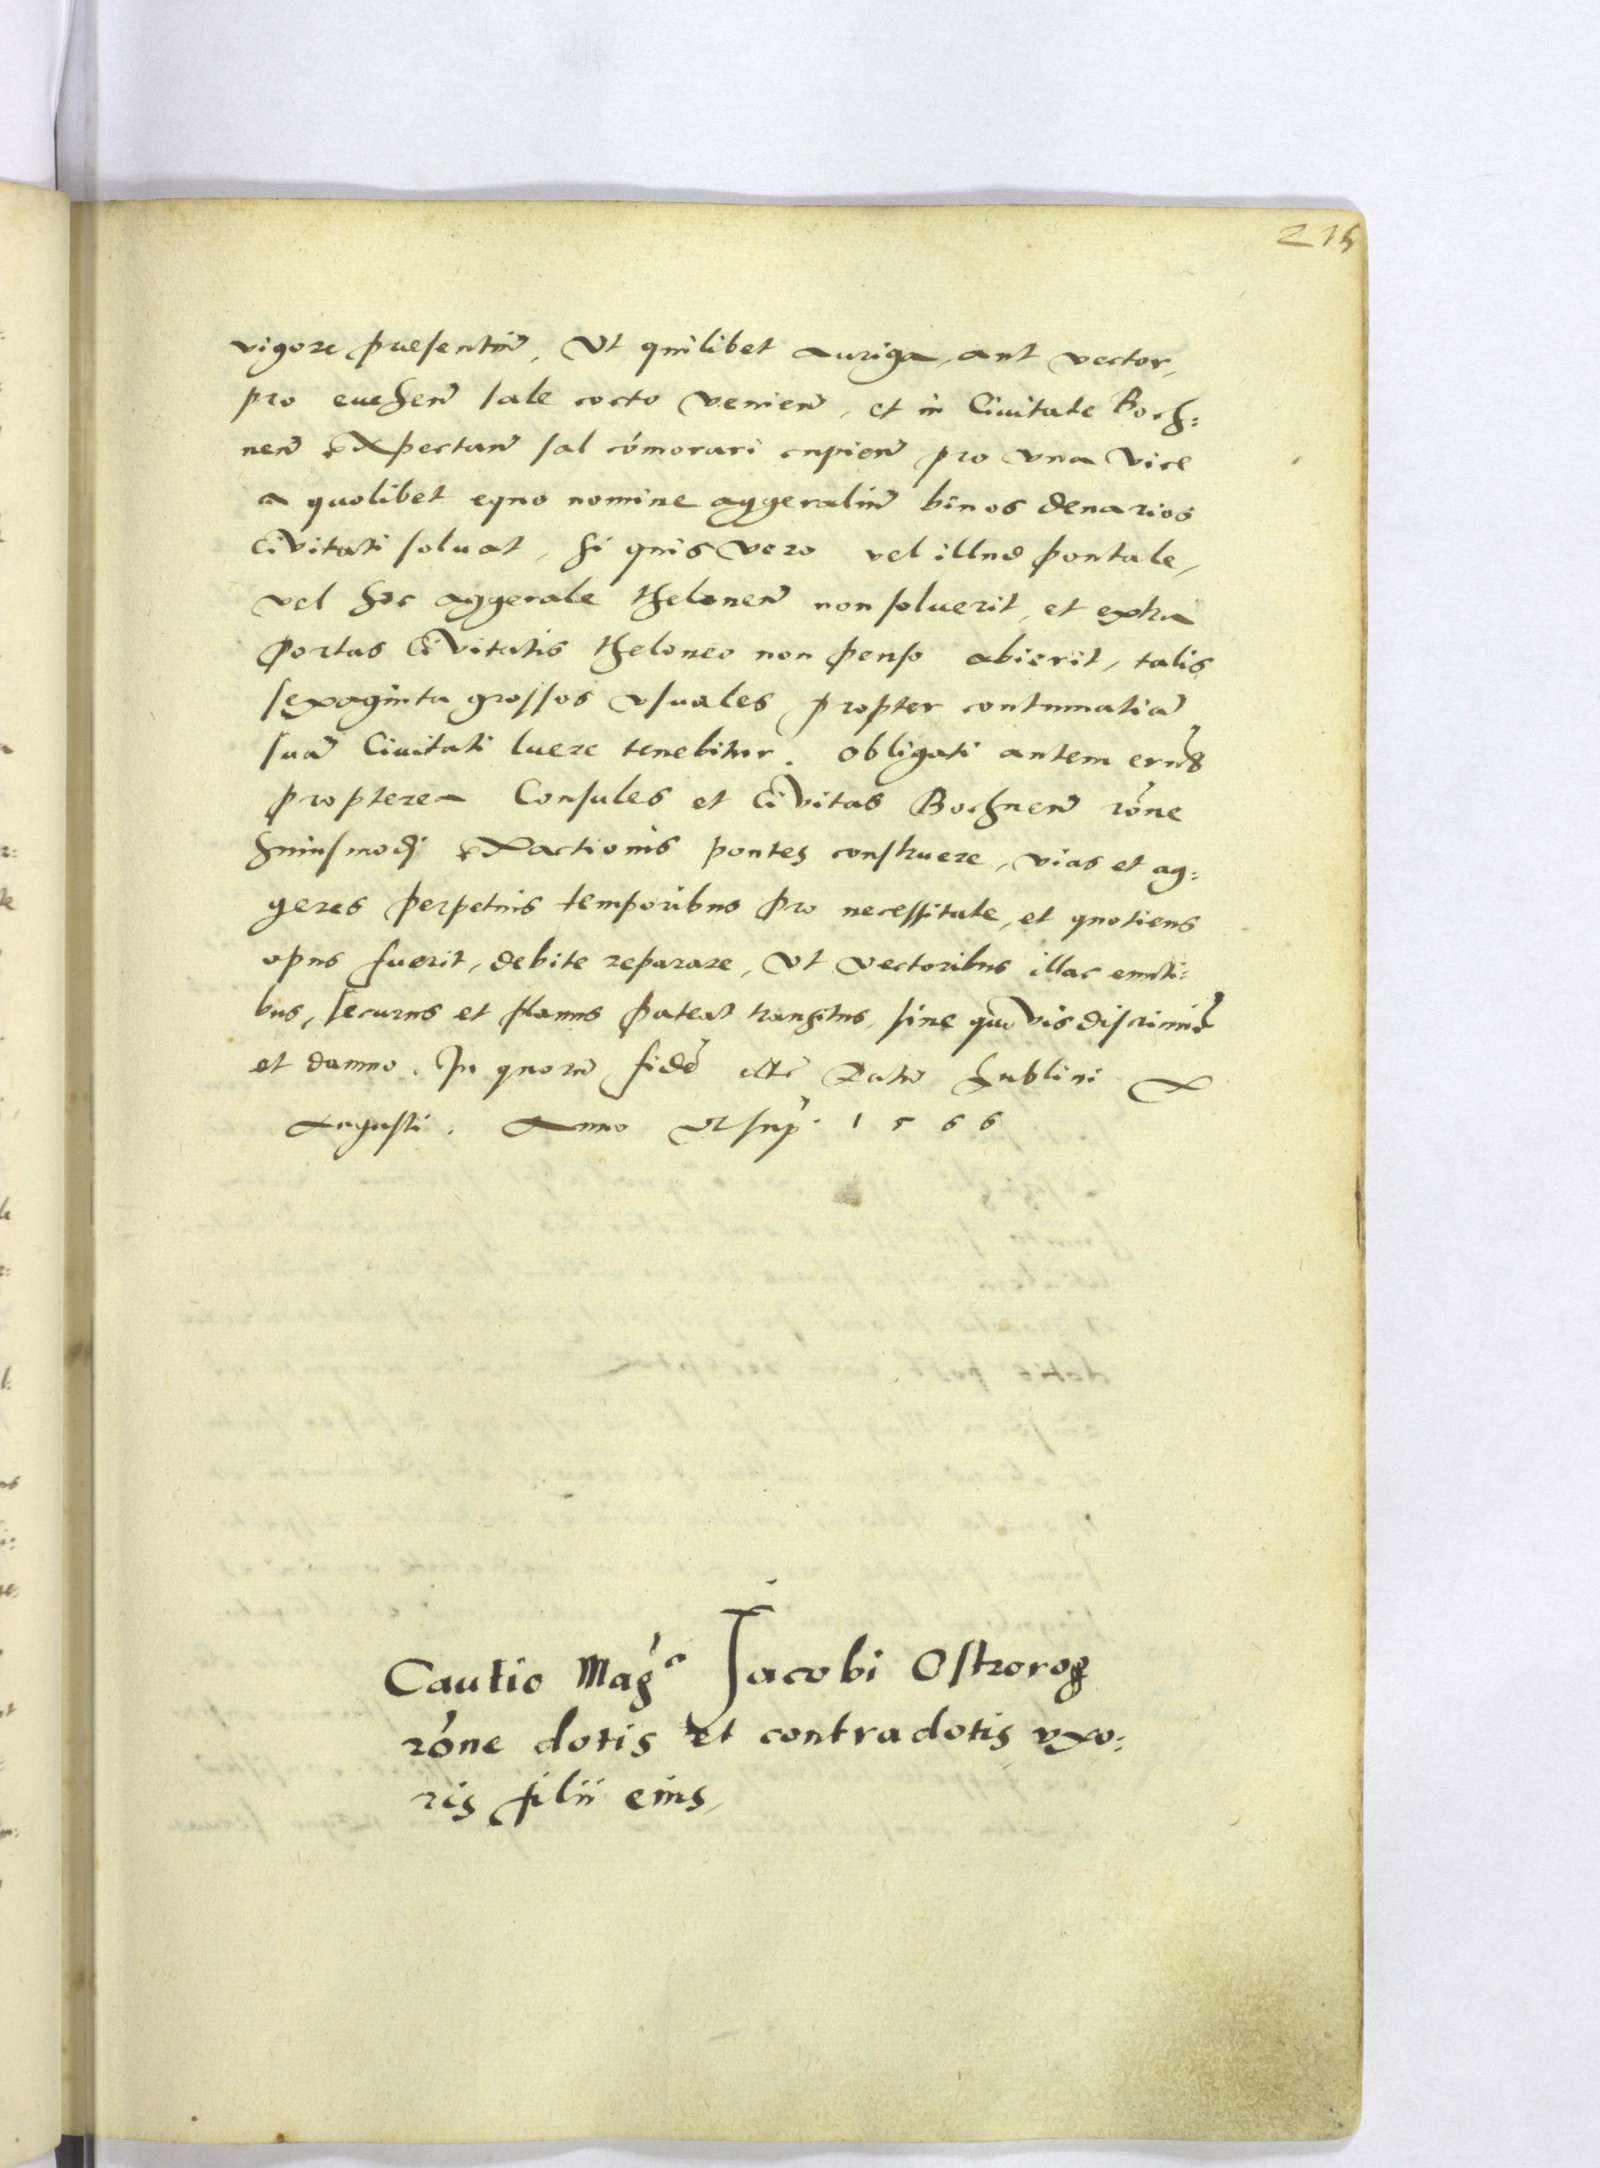 215
vigore presentiũ, Ut quilibet auriga, aut vector,
pro eueheñ sale cocto venieñ, et in Ciuitate Boch:
neñ expectañ sal cómorari cupieñ pro una vice
a quolibet equo nomine aggeraliũ binos denarios
Civitati soluat, si quis vero vel illud pontale,
vel hoc aggerale theloneũ non soluerit, et extra
portas Civitatis theloneo non penso abierit, talis
sexaginta grossos usuales propter contumatiã
suã Ciuitati luere tenebitur. Obligati autem erũt
propterea Consules et Civitas Bochneñ róne
huiusmodi exactionis pontes construere, vias et ag:
geres perpetuis temporibus pro necessitate, et quotiens
opus fuerit, debite reparare, Ut vectoribus illac eunti:
bus, securus et planus pateat transitus, sine quovis discrimiẽ
et damno. In quorũ fidẽ etc̃ Datũ Lublini X
Augusti. Anno ut sup. 1566
Cautio Magci Jacobi Ostrorog
róne dotis et contradotis uxo:
ris filii eius,